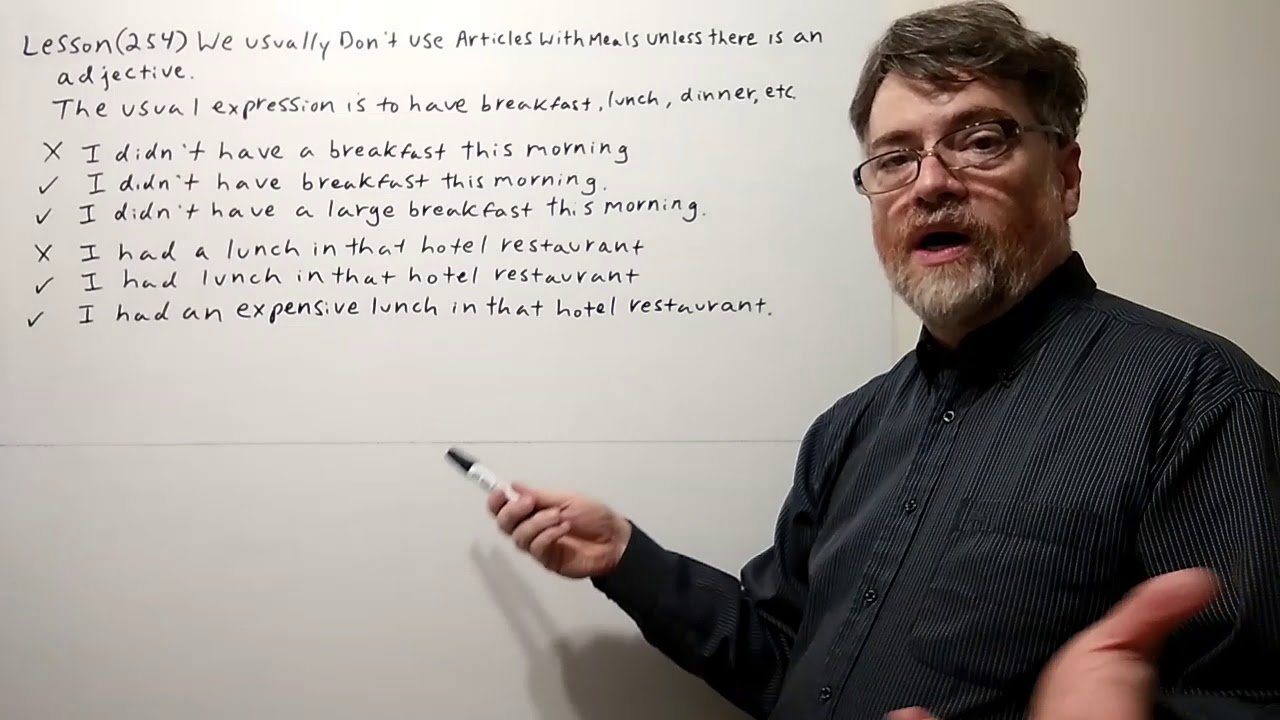 Lesson(254) We usually Don't use Articles with Meals unless there is an
adjective.
The usual expression is to have breakfast, lunch, dinner, etc.
X I didn't have a breakfast this morning
✓ I didn't have breakfast this morning.
✓ I didn't have a large breakfast this morning.
X I had a lunch in that hotel restaurant
✓ I had lunch in that hotel restaurant
✓ I had an expensive lunch in that hotel restaurant.